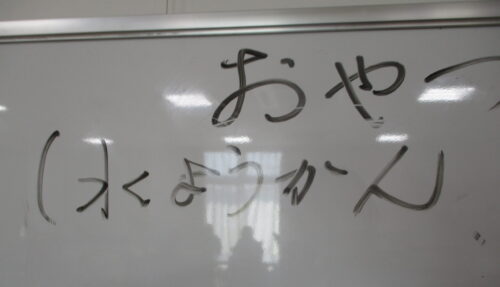 おやつ
(水ようかん)